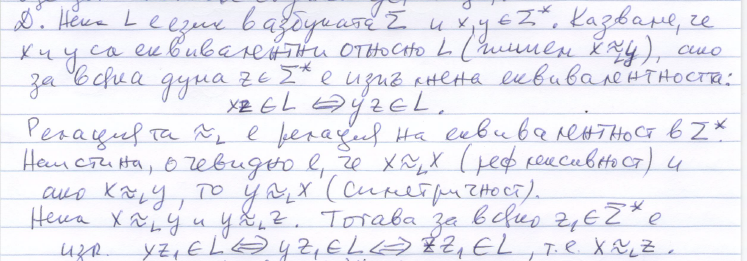 D. Нека L е език в азбуката Σ и x, y ∈ Σ*. Казваме, че
x и y са еквивалентни относно L (пишем x ≈_L y), ако
за всяка дума z ∈ Σ* е изпълнена еквивалентността:
xz ∈ L ⇔ yz ∈ L.
Релацията ≈_L е релация на еквивалентност в Σ*.
Наистина, очевидно е, че x ≈_L x (рефлексивност) и
ако x ≈_L y, то y ≈_L x (симетричност).
Нека x ≈_L y и y ≈_L z. Тогава за всяко z₁ ∈ Σ* е
изп. xz₁ ∈ L ⇔ yz₁ ∈ L ⇔ zz₁ ∈ L, т.е. x ≈_L z.